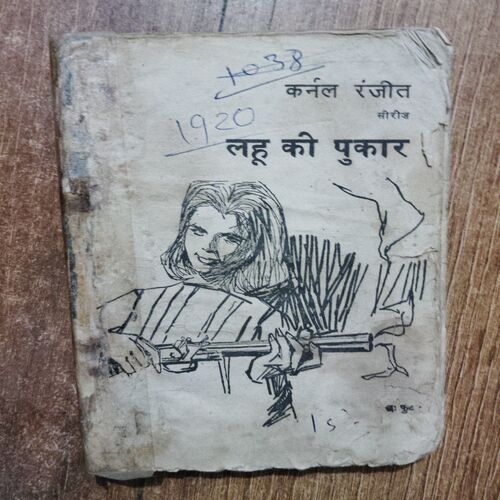 1038
कर्नल रंजीत
सीरीज
1920
लहू की पुकार